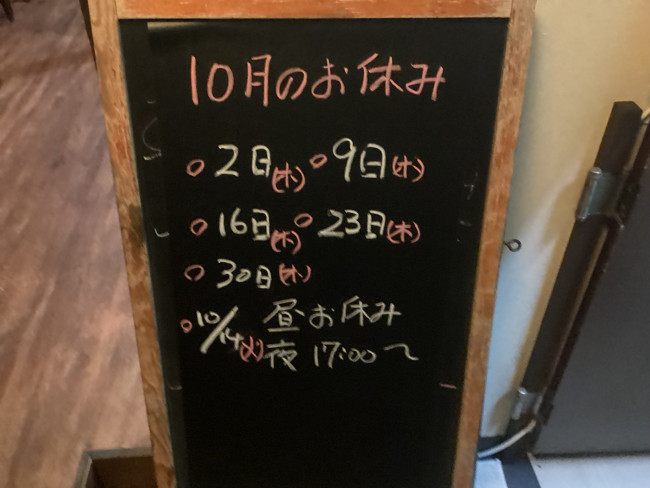 10月のお休み
○2日(木) ○9日(木)
○16日(木) ○23日(木)
○30日(木)
○10/14(火) 昼お休み
夜 17:00〜